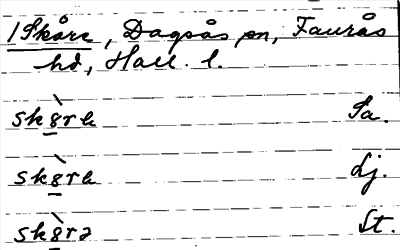 1 Skåre, Dagsås sn, Faurås
hd, Hall. l.
skø̀ra Sa.
skø̀ra Lj.
skø̀rə St.